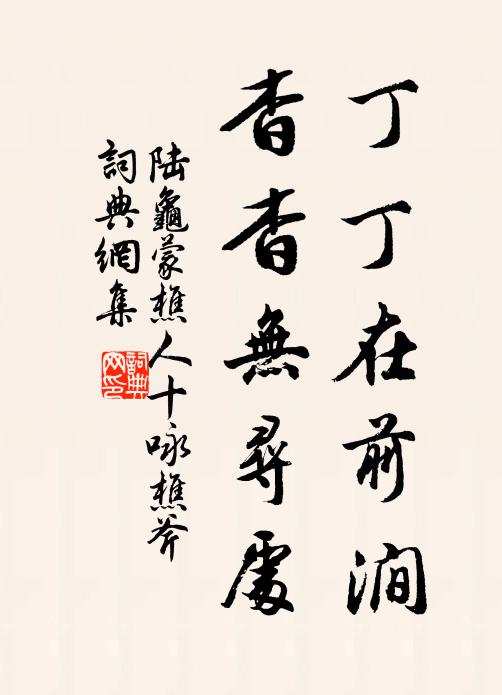 丁丁在前澗
杳杳無尋處
陸龜蒙樵人十咏樵斧
詞典網集
詞典
网印